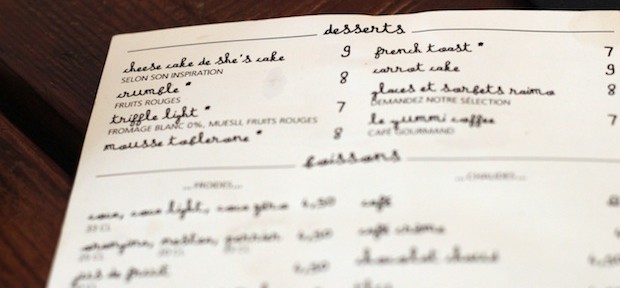 desserts
cheese cake de she's cake 9
SELON SON INSPIRATION
crumble * 8
FRUITS ROUGES
triffle light * 7
FROMAGE BLANC 0%, MUESLI, FRUITS ROUGES
mousse toblerone * 8
french toast * 7
carrot cake 9
glaces et sorbets raimo 8
DEMANDEZ NOTRE SÉLECTION
le yummi coffee 7
CAFÉ GOURMAND
boissons
FROIDES
coca, coca light, coca zéro
33 CL
jus de fruit
CHAUDES
café
café crème
chocolat chaud